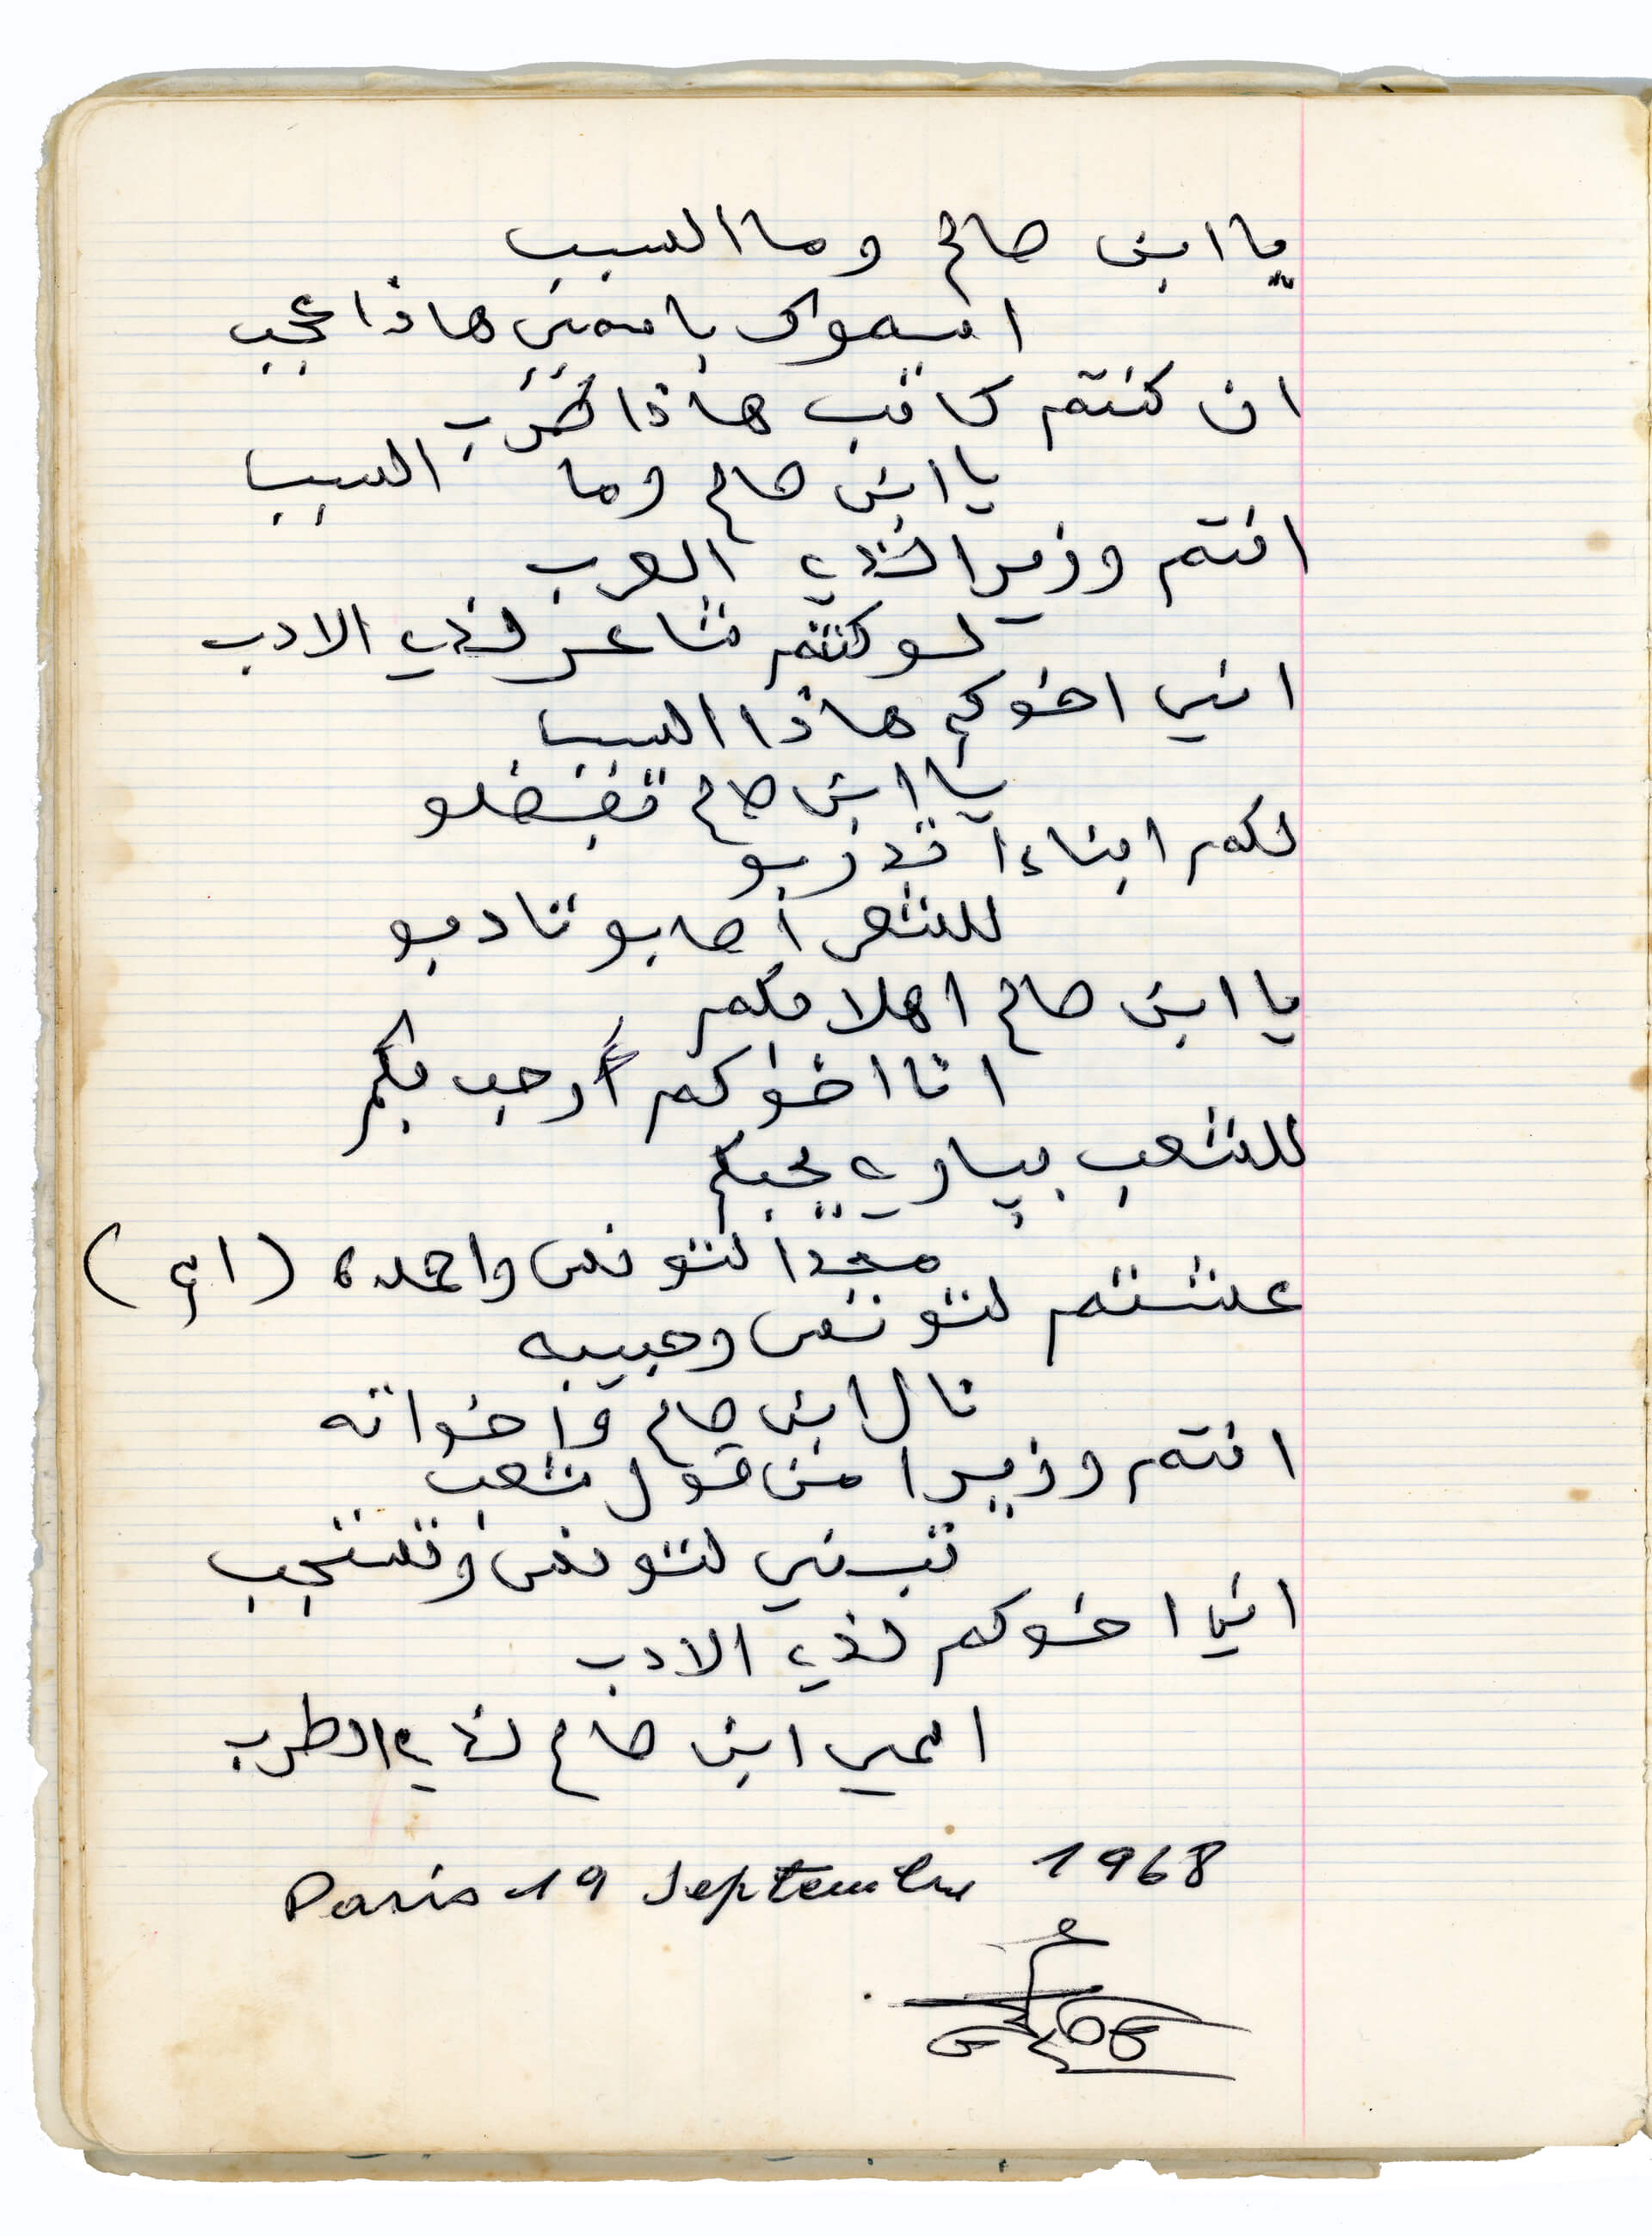 يا ابن صالح وما السبب
اسموك باسمين هاذا عجب
ان كنتم كاتب هاذا
يا ابن صالح وما السبب
انتم وزيرا لذي العرب
لو كنتم شاعر لذي الادب
انني اخوكم هاذا السبب
يا ابن صالح تفضلو
لكم ابناءا تدربو
للشعر أصابو تادبو
يا ابن صالح اهلا بكم
انا اخوكم أرحب بكم
للشعب بپاري يحبكم
مجدا لتونس واحمده (ابع)
عشتم لتونس وحبيبه
نال ابن صالح وأخواته
انتم وزيرا من قول شعب
تبني لتونس وتستجب
اني اخوكم لذي الادب
اسمي ابن صالح لذي الطرب
Paris 19 Septembre 1968